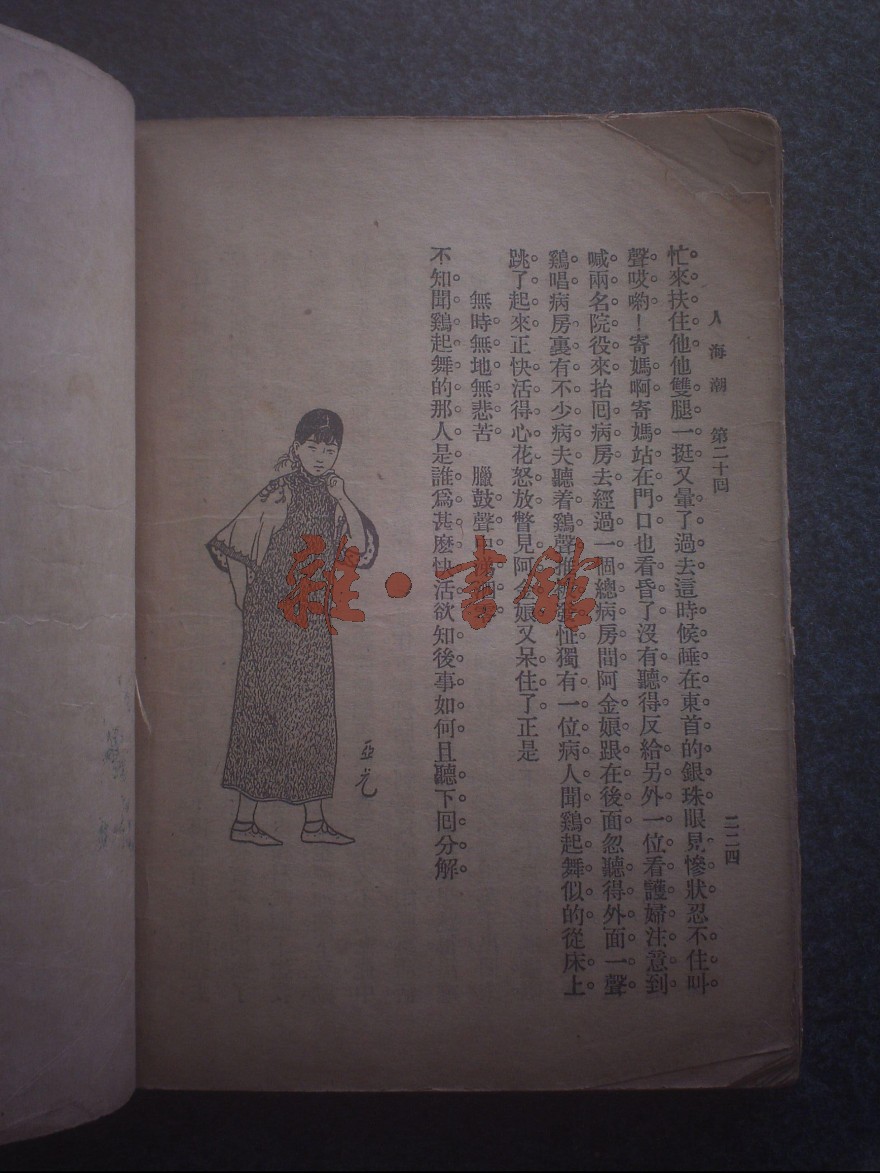 人海潮 第二十回 二二四
忙來扶住他他雙腿一挺又暈了過去這時候睡在東首的銀珠眼見慘狀忍不住叫
聲哎喲！寄媽啊寄媽站在門口也看昏了沒有聽得反給另外一位看護婦注意到
喊兩名院役來抬回病房去經過一個總病房間阿金娘跟在後面忽聽得外面一聲
鷄唱病房裏有不少病夫聽着鷄聲推 獨有一位病人聞鷄起舞似的從床上
跳了起來正快活得心花怒放瞥見阿金娘又呆住了正是
無時無地無悲苦 臘鼓聲
不知聞鷄起舞的那人是誰爲甚麽快活欲知後事如何且聽下回分解
亞光
雜·書館